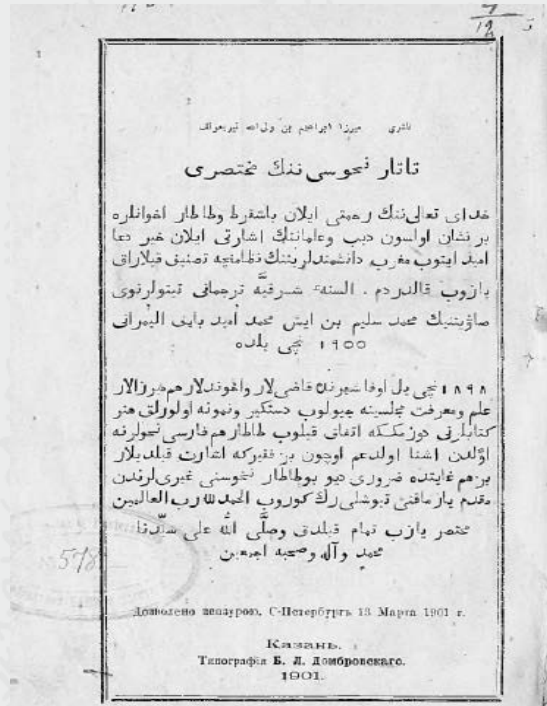 ناشری میرزا ابراهیم بن ولی الله
تاتار نحوسی ننك مختصری
خدای تعالی ننك رحمتی ایلان باشقرط وطاطار اخوانلره
بر نشان اولسون دیب وعلماننك اشارتی ایلان خیر دعا
امید ایتوب مغرب دانشمندلریننك نظامنچه تصنیق قیلاراق
یازوب قالدردم . السنهٔ شرقیه ترجمانی تیتولرنوی
صاؤیتنیك محمد سلیم بن ایش محمد امید بایف الیمرانی
۱۹۰۰ نچی یلده
۱۸۹۸ نچی یل اوفا شهرنده قاضی لار واخوندلار هم میرزالار
علم ومعرفت مجلسینه جیولوب دستكیر ونمونه اولورلق هنر
كتابلرنی دوزمككه اتفاق قیلوب طاطار هم فارسی نحولرنه
اوّلدن اشنا اولدغم اوچون بن فقیركه اشارت قیلدیلار
بن هم غایتده ضروری دیو بو طاطار نحوسنی غیری لرندن
مقدم یازماقنی تیوشلی رك كوروب الحمد لله رب العالمین
مختصر یازب تمام قیلدق وصلّی اللّه علی سیّدنا
محمد وآله وصحبه اجمعین
578
Дозволено цензурою, С-Петербургъ 13 Марта 1901 г.
Казань.
Типографія Б. Л. Домбровскаго.
1901.